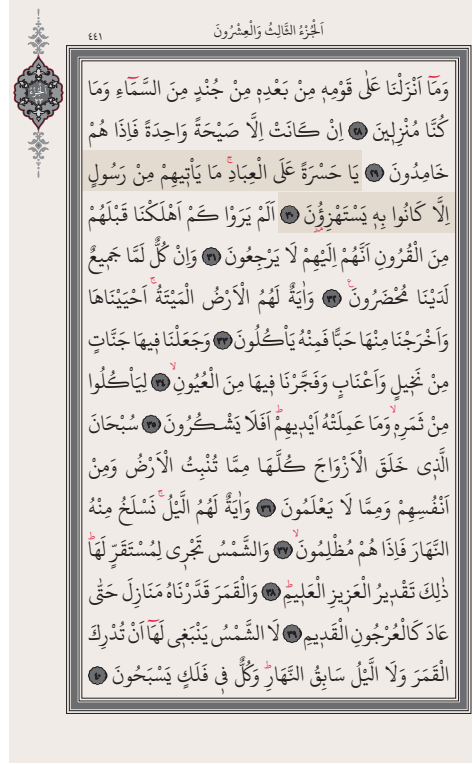 اَلْجُزْءُ الثَّالِثُ وَالْعِشْرُونَ
٤٤١
اَلْجُزْءُ
وَمَٓا اَنْزَلْنَا عَلٰى قَوْمِه۪ مِنْ بَعْدِه۪ مِنْ جُنْدٍ مِنَ السَّمَٓاءِ وَمَا
كُنَّا مُنْزِل۪ينَ ﴿٢٨﴾ اِنْ كَانَتْ اِلَّا صَيْحَةً وَاحِدَةً فَاِذَا هُمْ
خَامِدُونَ ﴿٢٩﴾ يَا حَسْرَةً عَلَى الْعِبَادِۚ مَا يَأْت۪يهِمْ مِنْ رَسُولٍ
اِلَّا كَانُوا بِه۪ يَسْتَهْزِؤُ۫نَ ﴿٣٠﴾ اَلَمْ يَرَوْا كَمْ اَهْلَكْنَا قَبْلَهُمْ
مِنَ الْقُرُونِ اَنَّهُمْ اِلَيْهِمْ لَا يَرْجِعُونَ ﴿٣١﴾ وَاِنْ كُلٌّ لَمَّا جَم۪يعٌ
لَدَيْنَا مُحْضَرُونَ۟ ﴿٣٢﴾ وَاٰيَةٌ لَهُمُ الْاَرْضُ الْمَيْتَةُۚ اَحْيَيْنَاهَا
وَاَخْرَجْنَا مِنْهَا حَبًّا فَمِنْهُ يَأْكُلُونَ ﴿٣٣﴾ وَجَعَلْنَا ف۪يهَا جَنَّاتٍ
مِنْ نَخ۪يلٍ وَاَعْنَابٍ وَفَجَّرْنَا ف۪يهَا مِنَ الْعُيُونِۙ ﴿٣٤﴾ لِيَأْكُلُوا
مِنْ ثَمَرِه۪ۙ وَمَا عَمِلَتْهُ اَيْد۪يهِمْۜ اَفَلَا يَشْكُرُونَ ﴿٣٥﴾ سُبْحَانَ
الَّذ۪ي خَلَقَ الْاَزْوَاجَ كُلَّهَا مِمَّا تُنْبِتُ الْاَرْضُ وَمِنْ
اَنْفُسِهِمْ وَمِمَّا لَا يَعْلَمُونَ ﴿٣٦﴾ وَاٰيَةٌ لَهُمُ الَّيْلُۚ نَسْلَخُ مِنْهُ
النَّهَارَ فَاِذَا هُمْ مُظْلِمُونَۙ ﴿٣٧﴾ وَالشَّمْسُ تَجْر۪ي لِمُسْتَقَرٍّ لَهَاۜ
ذٰلِكَ تَقْد۪يرُ الْعَز۪يزِ الْعَل۪يمِۜ ﴿٣٨﴾ وَالْقَمَرَ قَدَّرْنَاهُ مَنَازِلَ حَتّٰى
عَادَ كَالْعُرْجُونِ الْقَد۪يمِ ﴿٣٩﴾ لَا الشَّمْسُ يَنْبَغ۪ي لَهَٓا اَنْ تُدْرِكَ
الْقَمَرَ وَلَا الَّيْلُ سَابِقُ النَّهَارِۜ وَكُلٌّ ف۪ي فَلَكٍ يَسْبَحُونَ ﴿٤٠﴾